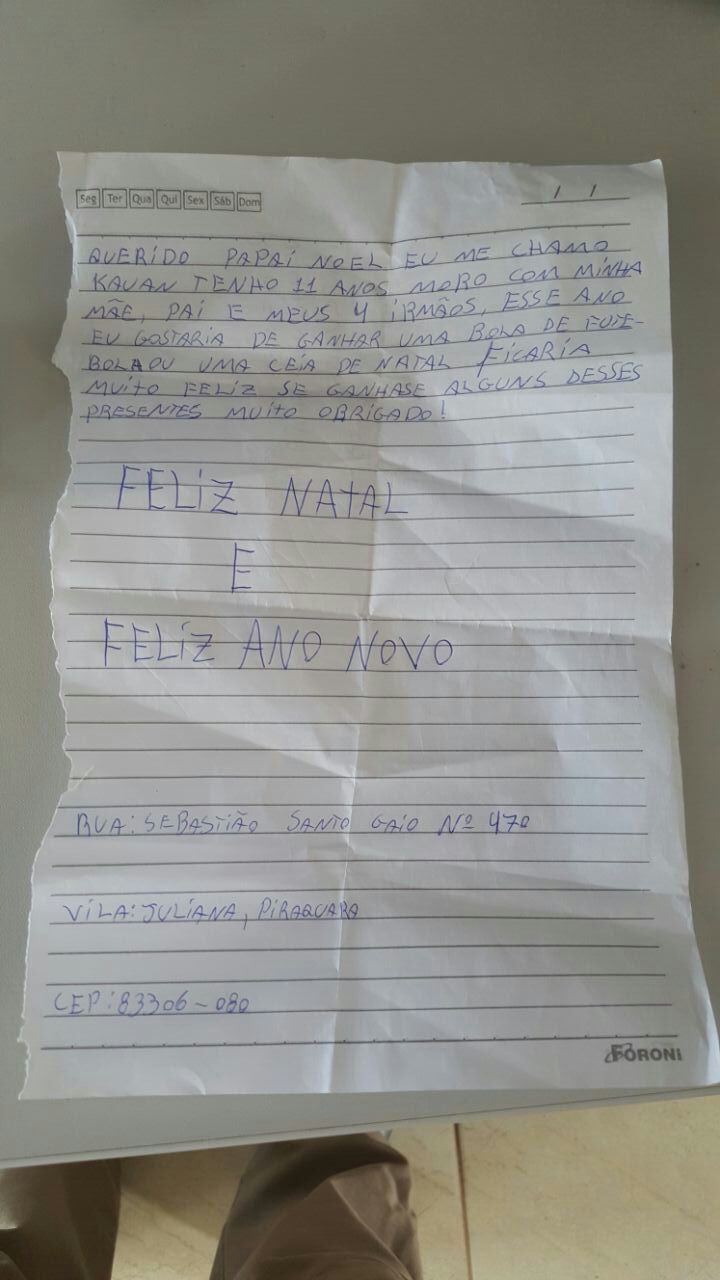 Seg Ter Qua Qui Sex Sáb Dom
/ /
QUERIDO PAPAI NOEL EU ME CHAMO
KAUAN TENHO 11 ANOS MORO COM MINHA
MÃE, PAI E MEUS 4 IRMÃOS, ESSE ANO
EU GOSTARIA DE GANHAR UMA BOLA DE FUTE-
BOLA OU UMA CEIA DE NATAL FICARIA
MUITO FELIZ SE GANHASE ALGUNS DESSES
PRESENTES MUITO OBRIGADO!
FELIZ NATAL
E
FELIZ ANO NOVO
RUA: SEBASTIÃO SANTO GAIO Nº 470
VILA: JULIANA, PIRAQUARA
CEP: 83306-080
FORONI